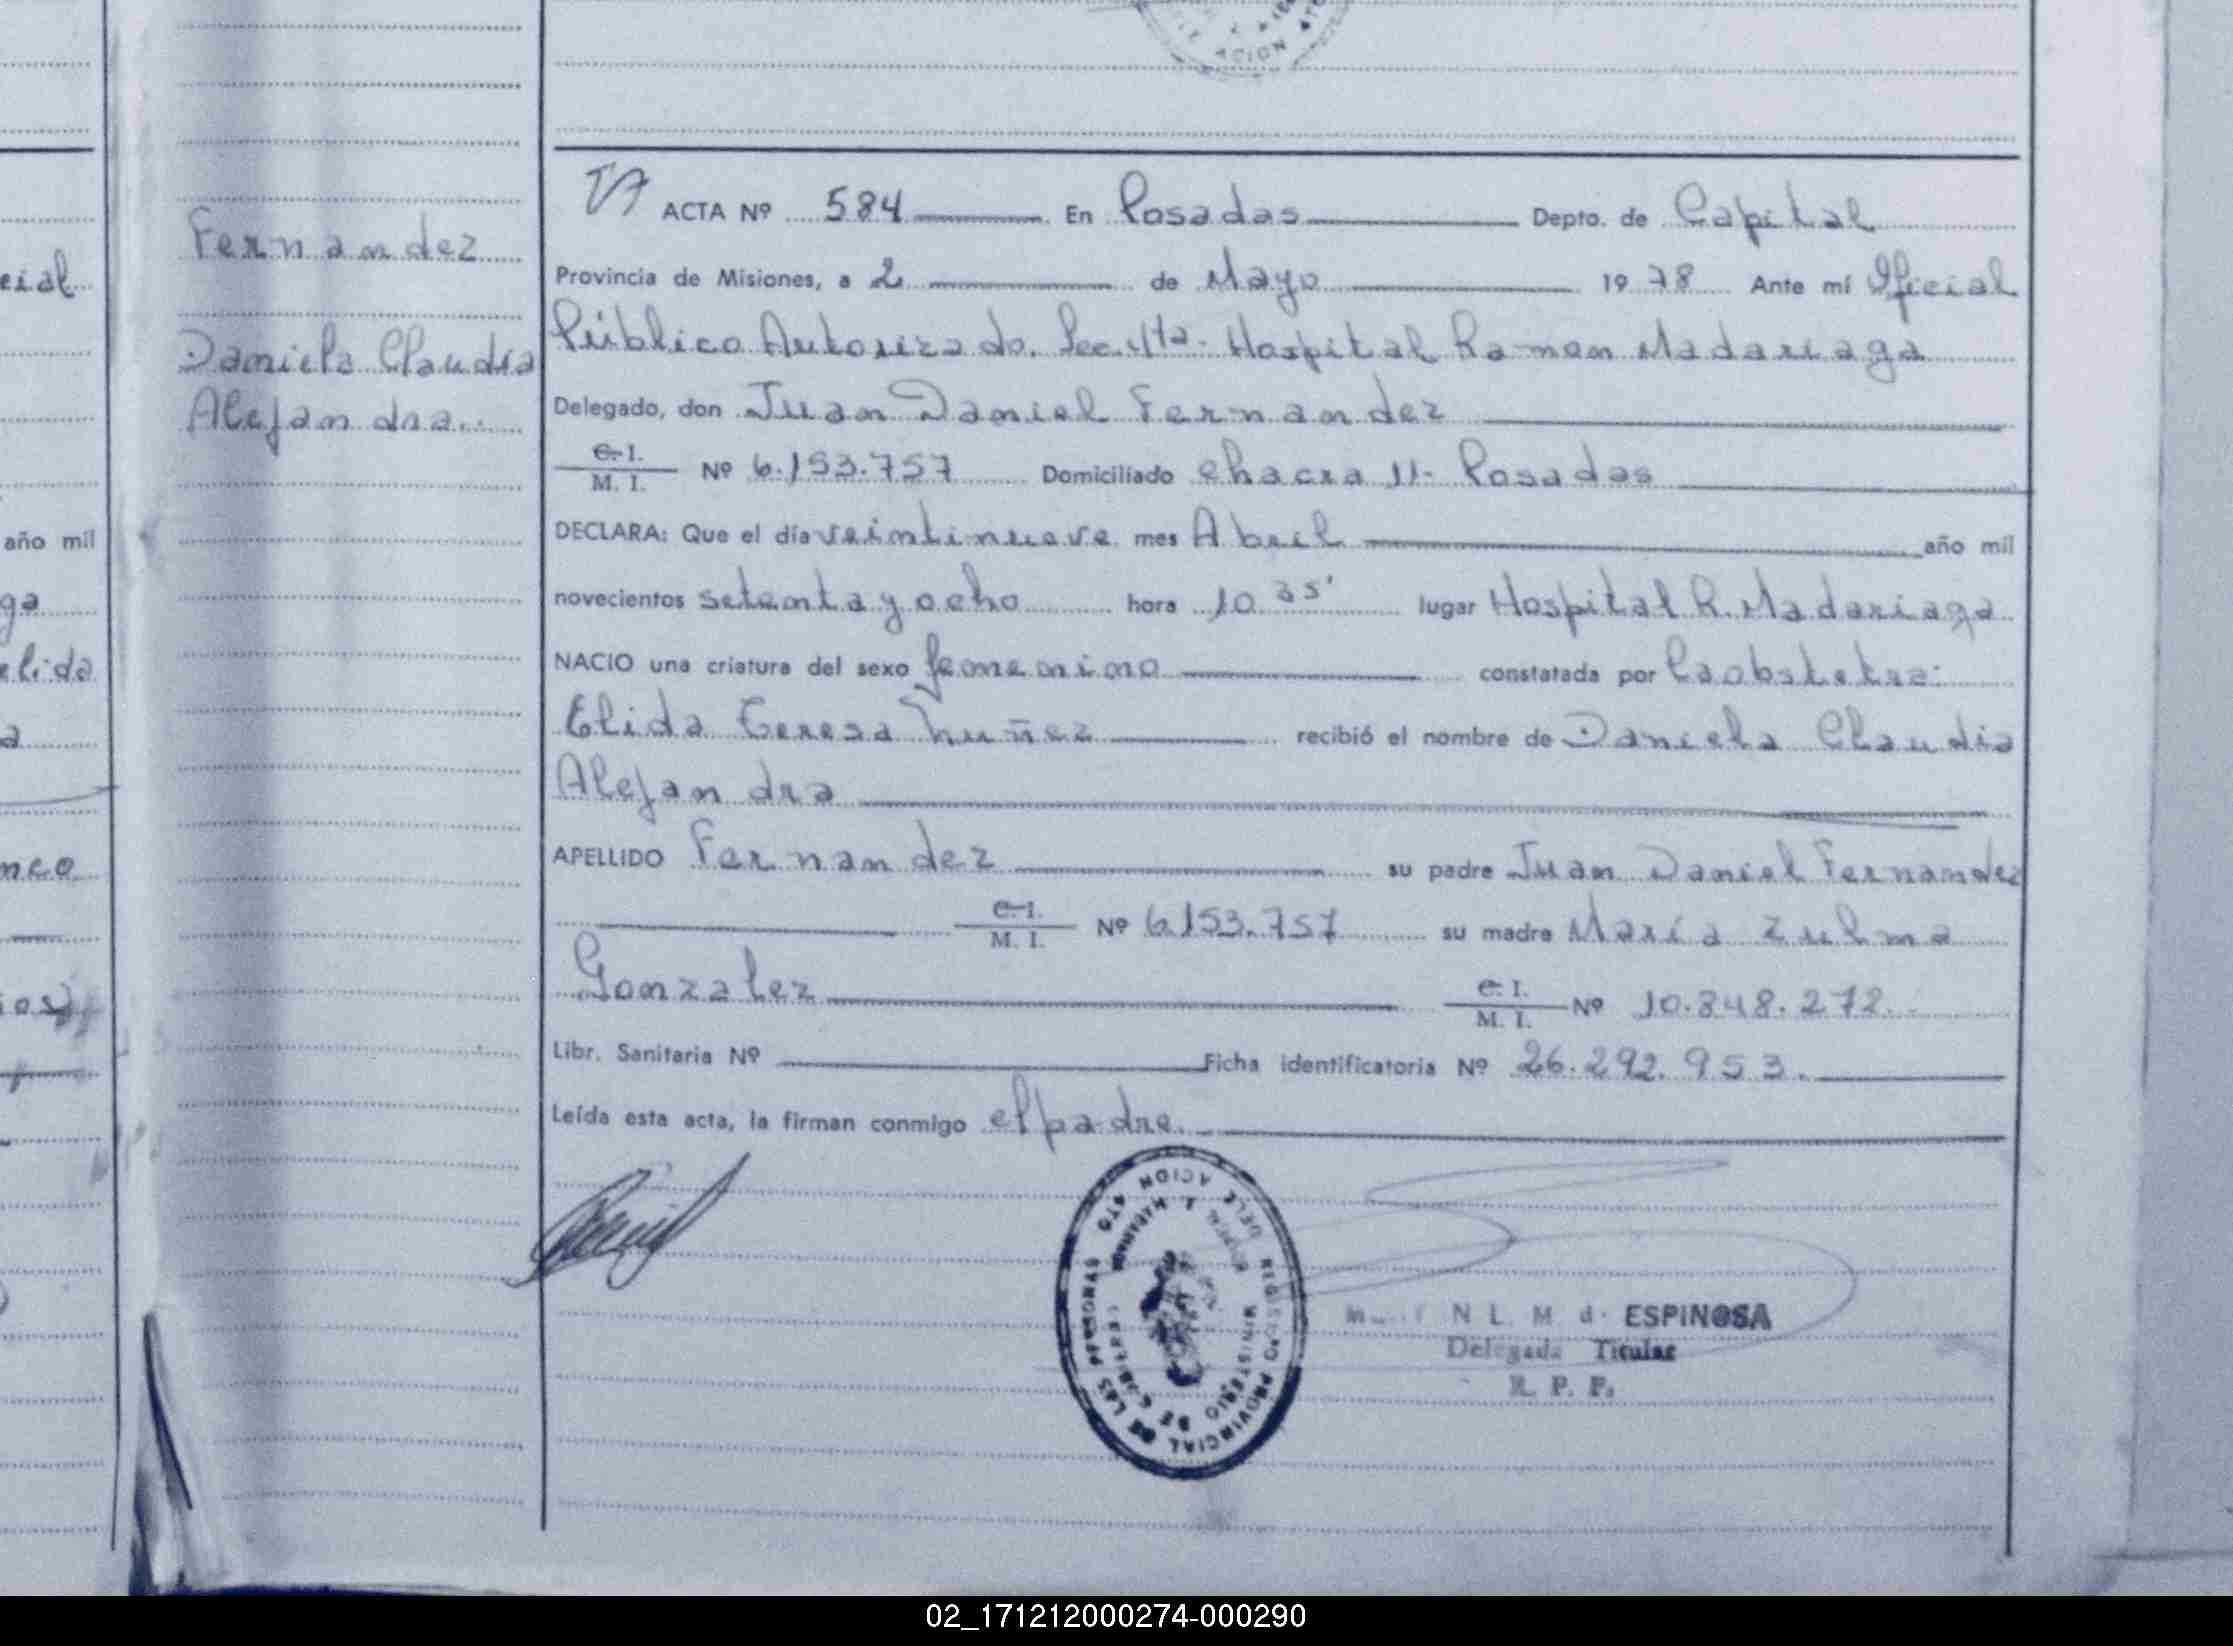 ACION
ACTA Nº 584 En Posadas Depto. de Capital
Provincia de Misiones, a 2 de Mayo 1978 Ante mí Oficial
Público Autorizado. Sec. 4ta. Hospital Ramon Madariaga
Delegado, don Juan Daniel Fernandez
C. I.
M. I. Nº 6.153.757 Domiciliado chacra 11- Posadas
DECLARA: Que el día veintinueve mes Abril año mil
novecientos setenta y ocho hora 10 35' lugar Hospital R. Madariaga
NACIO una criatura del sexo femenino constatada por La obstetra:
Elida Teresa Nuñez recibió el nombre de Daniela Claudia
Alejandra
APELLIDO Fernandez su padre Juan Daniel Fernandez
C. I.
M. I. Nº 6.153.757 su madre María Zulma
Gonzalez C. I.
M. I. Nº 10.848.272.
Libr. Sanitaria Nº Ficha identificatoria Nº 26.292.953.
Leída esta acta, la firman conmigo el padre.
Fernandez
Daniela Claudia
Alejandra
REGISTRO PROVINCIAL DE LAS PERSONAS
MINISTERIO DE
N L. M. d. ESPINOSA
Delegada Titular
R. P. P.
cial
año mil
ga
elida
a
nco
ios)
02_171212000274-000290